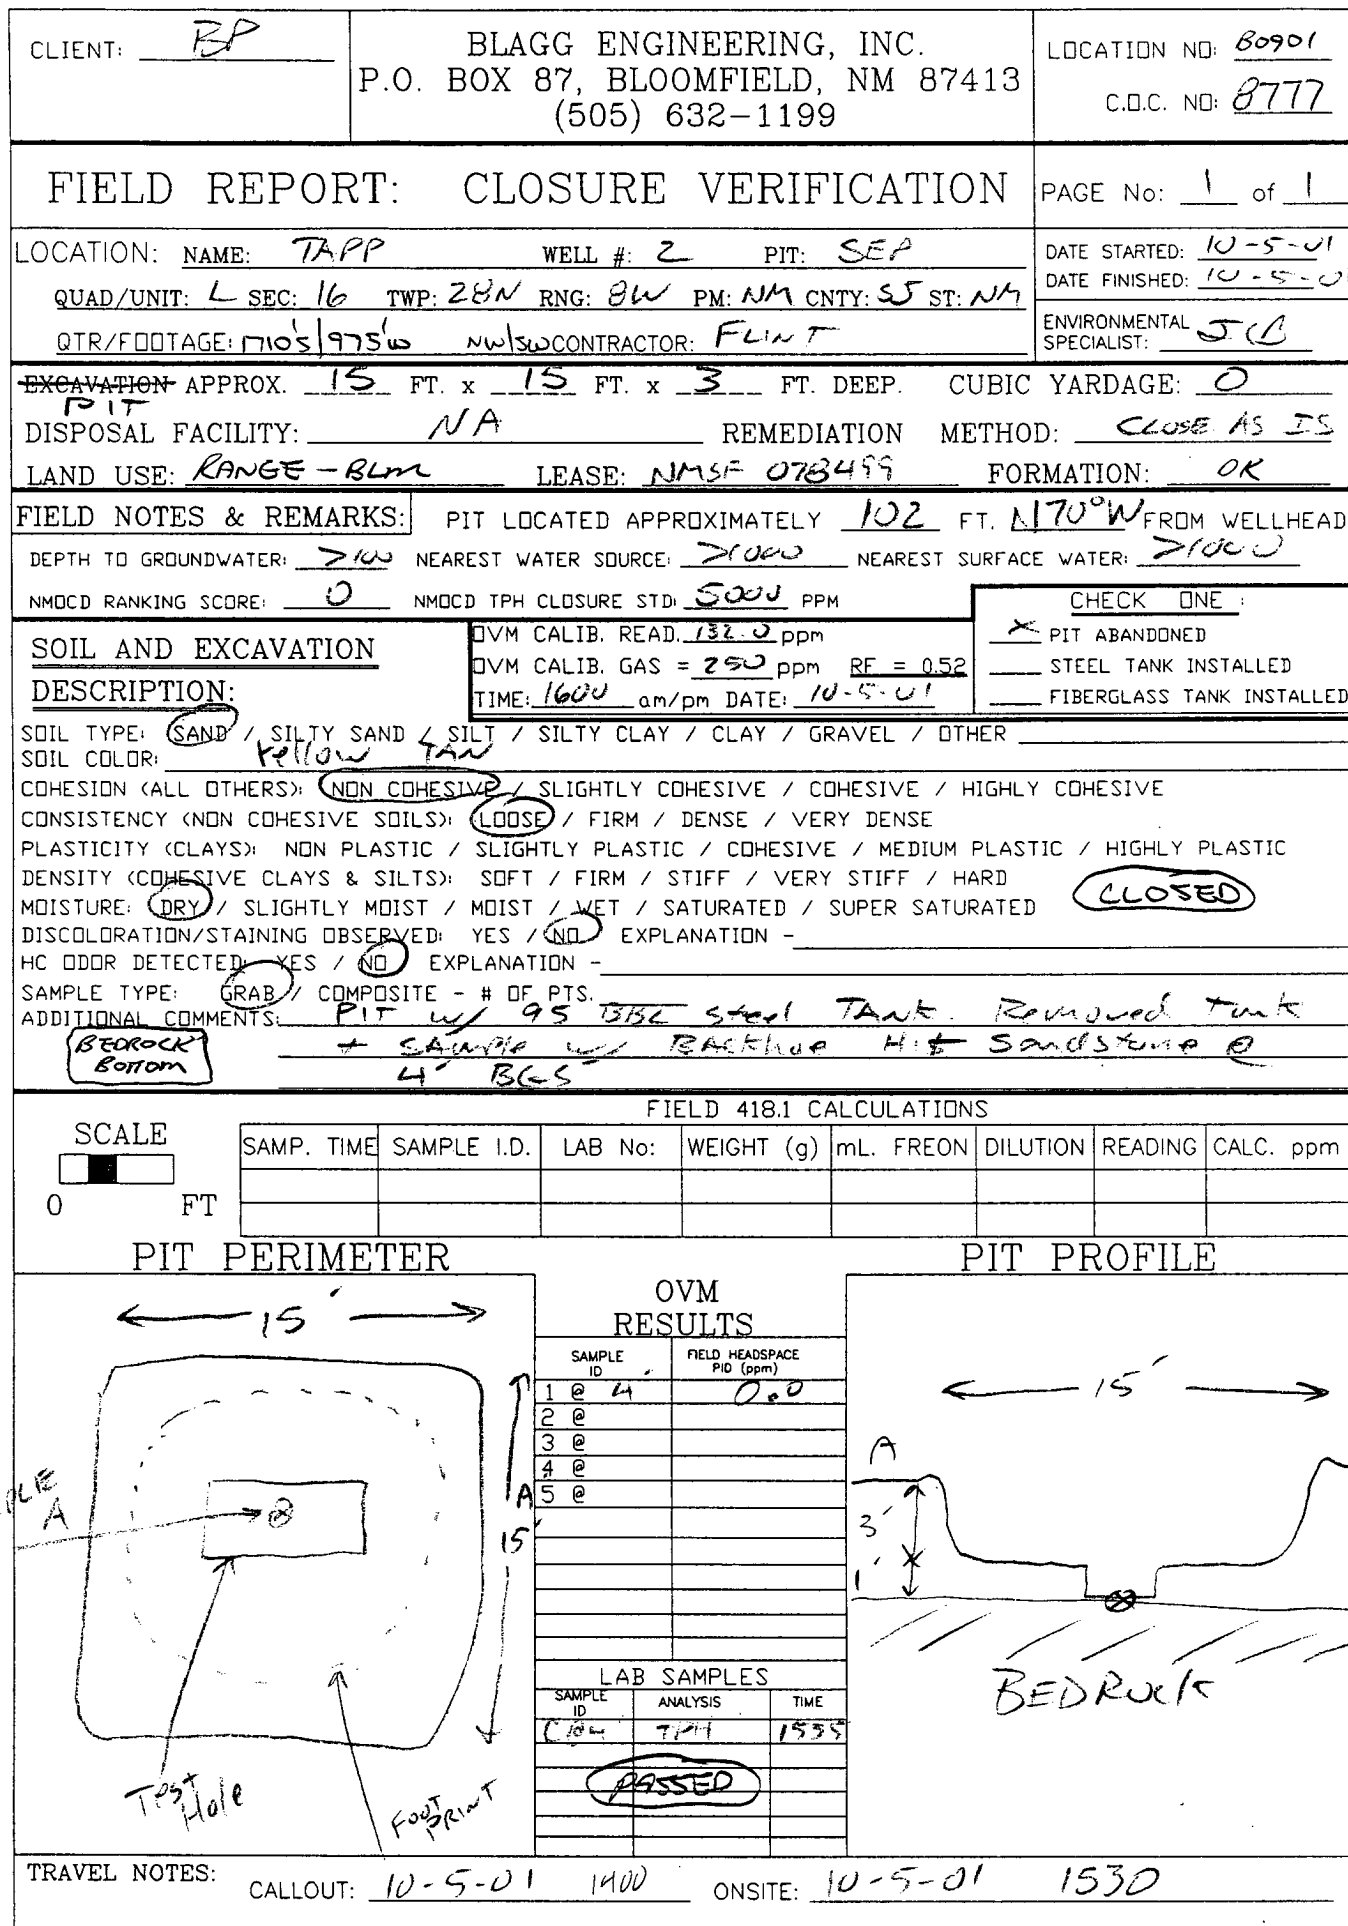 CLIENT: BP
BLAGG ENGINEERING, INC.
P.O. BOX 87, BLOOMFIELD, NM 87413
(505) 632-1199
LOCATION NO: B0901
C.O.C. NO: 8777
FIELD REPORT: CLOSURE VERIFICATION
PAGE No: 1 of 1
LOCATION: NAME: TAPP WELL #: 2 PIT: SEP
QUAD/UNIT: L SEC: 16 TWP: 28N RNG: 8W PM: NM CNTY: SJ ST: NM
QTR/FOOTAGE: 1710'S/975'W NW/SW CONTRACTOR: FLINT
DATE STARTED: 10-5-01
DATE FINISHED: 10-5-01
ENVIRONMENTAL
SPECIALIST:
EXCAVATION APPROX. 15 FT. x 15 FT. x 3 FT. DEEP. CUBIC YARDAGE: 0
PIT
DISPOSAL FACILITY: NA REMEDIATION METHOD: CLOSE AS IS
LAND USE: RANGE - BLM LEASE: NMSF 078499 FORMATION: OK
FIELD NOTES & REMARKS: PIT LOCATED APPROXIMATELY 102 FT. N70°W FROM WELLHEAD
DEPTH TO GROUNDWATER: >100 NEAREST WATER SOURCE: >1000 NEAREST SURFACE WATER: >1000
NMOCD RANKING SCORE: 0 NMOCD TPH CLOSURE STD: 5000 PPM
CHECK ONE :
X PIT ABANDONED
STEEL TANK INSTALLED
FIBERGLASS TANK INSTALLED
SOIL AND EXCAVATION
DESCRIPTION:
OVM CALIB. READ. 132.0 ppm
OVM CALIB. GAS = 250 ppm RF = 0.52
TIME: 1600 am/pm DATE: 10-5-01
SOIL TYPE: SAND / SILTY SAND / SILT / SILTY CLAY / CLAY / GRAVEL / OTHER
SOIL COLOR: Yellow TAN
COHESION (ALL OTHERS): NON COHESIVE / SLIGHTLY COHESIVE / COHESIVE / HIGHLY COHESIVE
CONSISTENCY (NON COHESIVE SOILS): LOOSE / FIRM / DENSE / VERY DENSE
PLASTICITY (CLAYS): NON PLASTIC / SLIGHTLY PLASTIC / COHESIVE / MEDIUM PLASTIC / HIGHLY PLASTIC
DENSITY (COHESIVE CLAYS & SILTS): SOFT / FIRM / STIFF / VERY STIFF / HARD
CLOSED
MOISTURE: DRY / SLIGHTLY MOIST / MOIST / WET / SATURATED / SUPER SATURATED
DISCOLORATION/STAINING OBSERVED: YES / NO EXPLANATION -
HC ODOR DETECTED: YES / NO EXPLANATION -
SAMPLE TYPE: GRAB / COMPOSITE - # OF PTS.
ADDITIONAL COMMENTS: PIT w/ 95 BBL Steel TANK. Removed Tank
+ SAMPle w/ BACKhoe Hit Sandstone @
4' BGS
BEDROCK
BOTTOM
FIELD 418.1 CALCULATIONS
SCALE
0 FT
SAMP. TIME SAMPLE I.D. LAB No: WEIGHT (g) mL. FREON DILUTION READING CALC. ppm
PIT PERIMETER
PIT PROFILE
15'
A
15'
A
Test
Hole
FOOT
PRINT
OVM
RESULTS
SAMPLE
ID
FIELD HEADSPACE
PID (ppm)
1 @ 4' 0.0
2 @
3 @
4 @
5 @
LAB SAMPLES
SAMPLE
ID
ANALYSIS
TIME
TPH 1535
PASSED
15'
A
3'
1'
BEDROCK
TRAVEL NOTES: CALLOUT: 10-5-01 1400 ONSITE: 10-5-01 1530